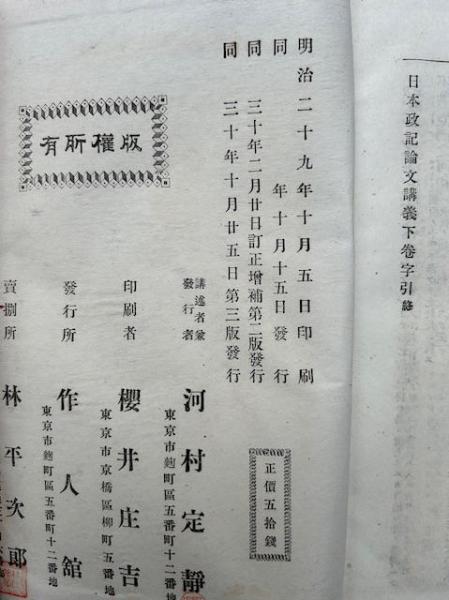 日本政記論文講義下卷字引終
明治二十九年十月五日印刷
同年十月十五日發行
同三十年二月廿日訂正增補第二版發行
同三十年十月廿五日第三版發行
正價五拾錢
版權所有
講述者兼發行者
河村定靜
東京市麹町區五番町十二番地
印刷者
櫻井庄吉
東京市京橋區柳町五番地
發行所
作人館
東京市麹町區五番町十二番地
賣捌所
林平次郎